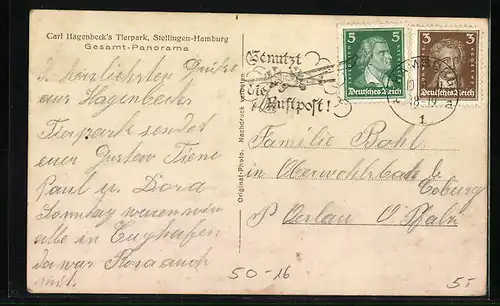 Carl Hagenbeck's Tierpark, Stellingen-Hamburg
Gesamt-Panorama
Die herzlichsten Grüße
aus Hagenbecks
Tierpark sendet
euer Gustav Tiene
Paul u. Dora
Sonntag waren wir
alle in Cuxhafen
da war Rosa auch
mit.
Original-Photo. Nachdruck verboten
Benutzt
die
Luftpost!
5 5
Deutsches Reich
3 3
Deutsches Reich
1
Familie Bohl
in Oberwohlsbach b.
Coburg
P Oeslau
50-16
5.-